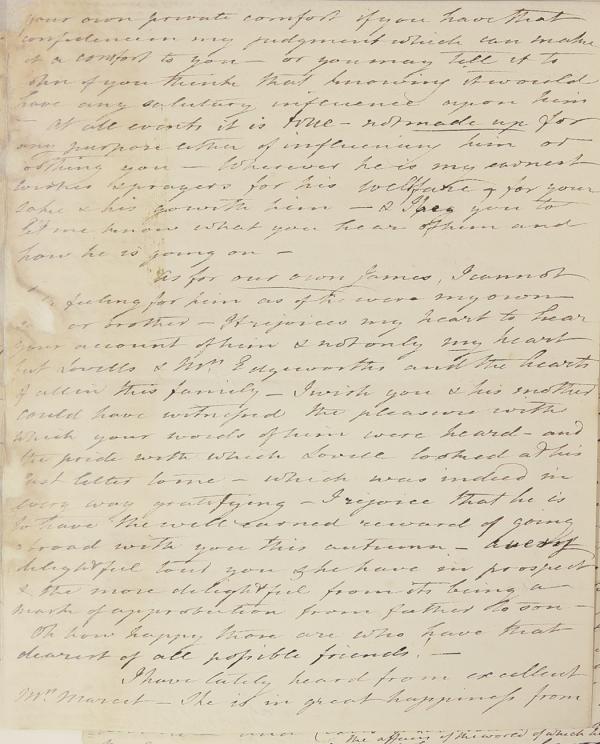 your own private comfort if you have that
confidence in my judgment which can make
it a comfort to you – or you may tell it to
him if you think that knowing it would
have any salutary influence upon him
– At all events it is true – not made up for
any purpose either of influencing him or
soothing you – Wherever he is my earnest
wishes & prayers for his welfare & for your
sake & his go with him – & I beg you to
let me know what you hear of him and
how he is going on –
As for our own James, I cannot
feeling for him as if he were my own
or brother – It rejoices my heart to hear
your account of him & not only my heart
but Lovells & Mrs. Edgeworths and the hearts
of all in this family – I wish you & his mother
could have witnessed the pleasure with
which your words of him were heard – and
the pride with which Lovell looked at his
last letter to me – which was indeed in
every way gratifying – I rejoice that he is
to have the well earned reward of going
abroad with you this autumn –
delightful tour you & he have in prospect
& the more delightful from its being a
mark of approbation from father to son –
Oh how happy those are who have that
dearest of all possible friends! –
I have lately heard from excellent
Mrs. Marcet – She is in great happiness from
the affairs of the world of which